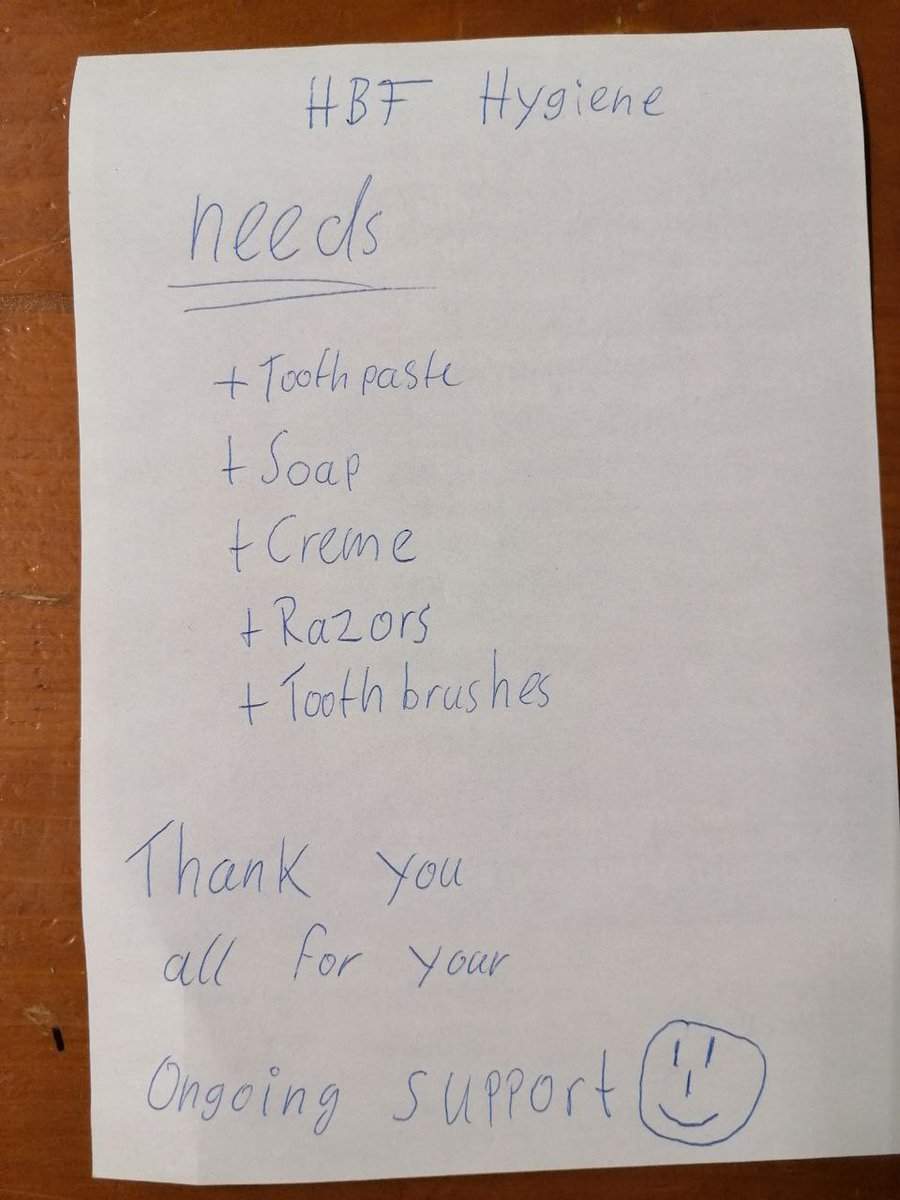 HBF Hygiene
needs
+ Toothpaste
+ Soap
+ Creme
+ Razors
+ Toothbrushes
Thank you
all for your
Ongoing support